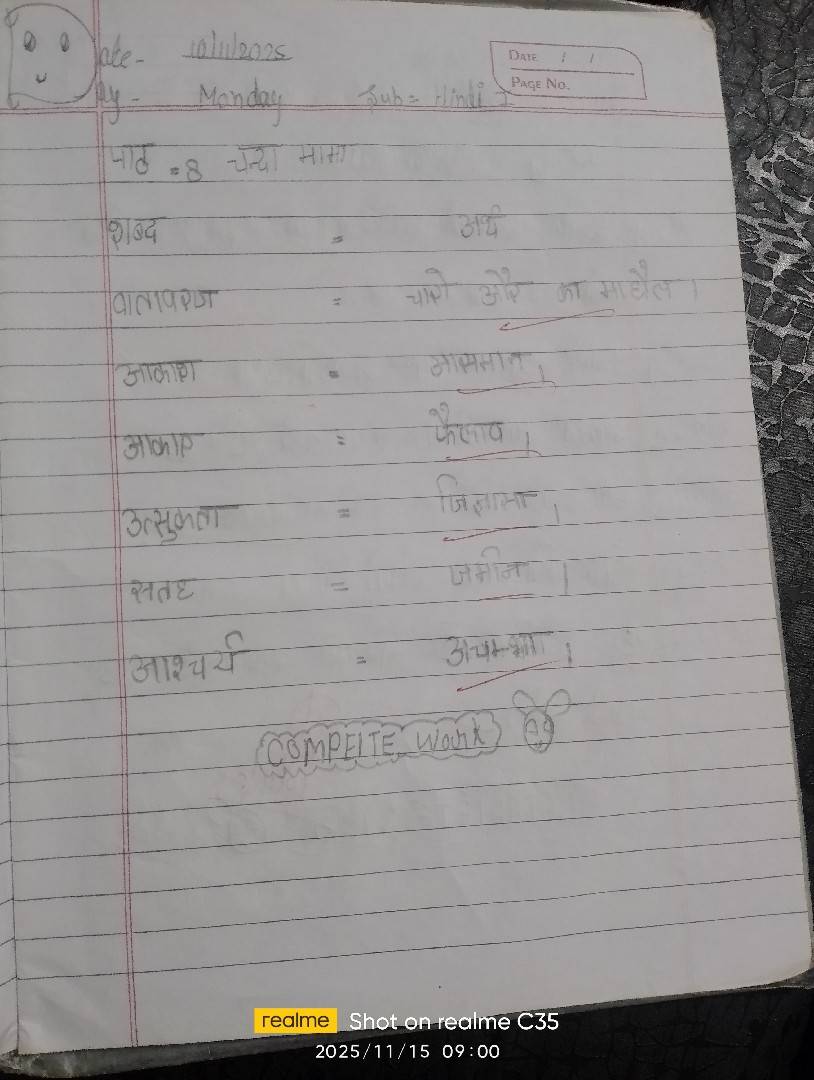 Date- 10/11/2025
DATE / /
Day- Monday Sub= Hindi
PAGE NO.
पाठ =8 चन्दा मामा
शब्द = अर्थ
वातावरण = चारो और का माहौल ।
आकाश = आसमान ।
आकार = फैलाव ।
उत्सुकता = जिज्ञासा ।
सतह = जमीन ।
आश्चर्य = अचम्भा ।
COMPELTE Work
realme Shot on realme C35
2025/11/15 09:00